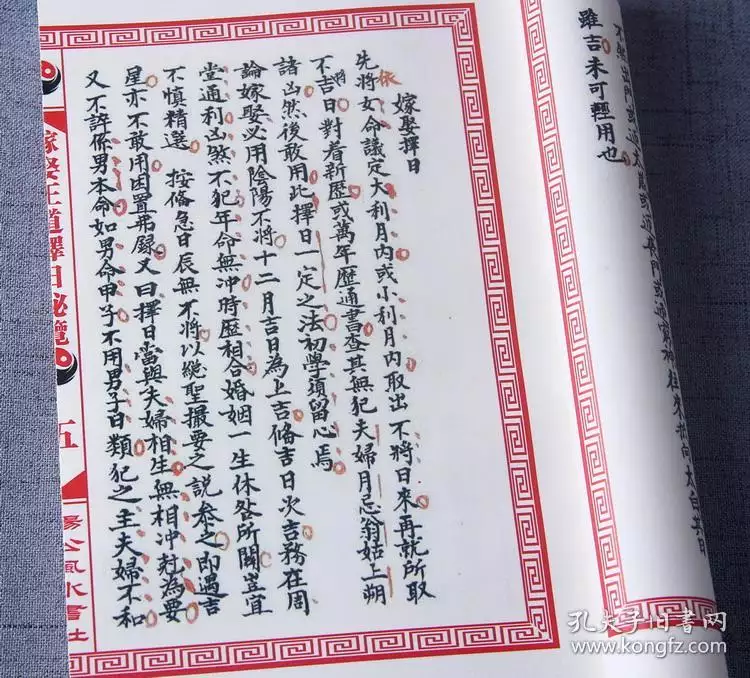 雖吉未可輕用也
嫁娶擇日
先將女命議定大利月內或小利月內取出不將日來再就所取
依
不吉日對着新歷或萬年歷通書查其無犯夫婦月忌翁姑上朔
將
諸凶然後敢用此擇日一定之法初學須留心焉
論嫁娶必用陰陽不將十二月吉日為上吉俻吉日次吉務在周
堂通利凶煞不犯年命無冲時歷相合婚姻一生休咎所關豈宜
不慎精選 按俻急日辰無不將以總聖撮要之說參之即遇吉
星亦不敢用因置弗錄又曰擇日當與夫婦相生無相冲尅為要
又不許係男本命如男命甲子不用男子日類犯之主夫婦不和
嫁娶王道擇日秘覽
五
楊公風水書社
孔夫子旧書网
kongfz.com